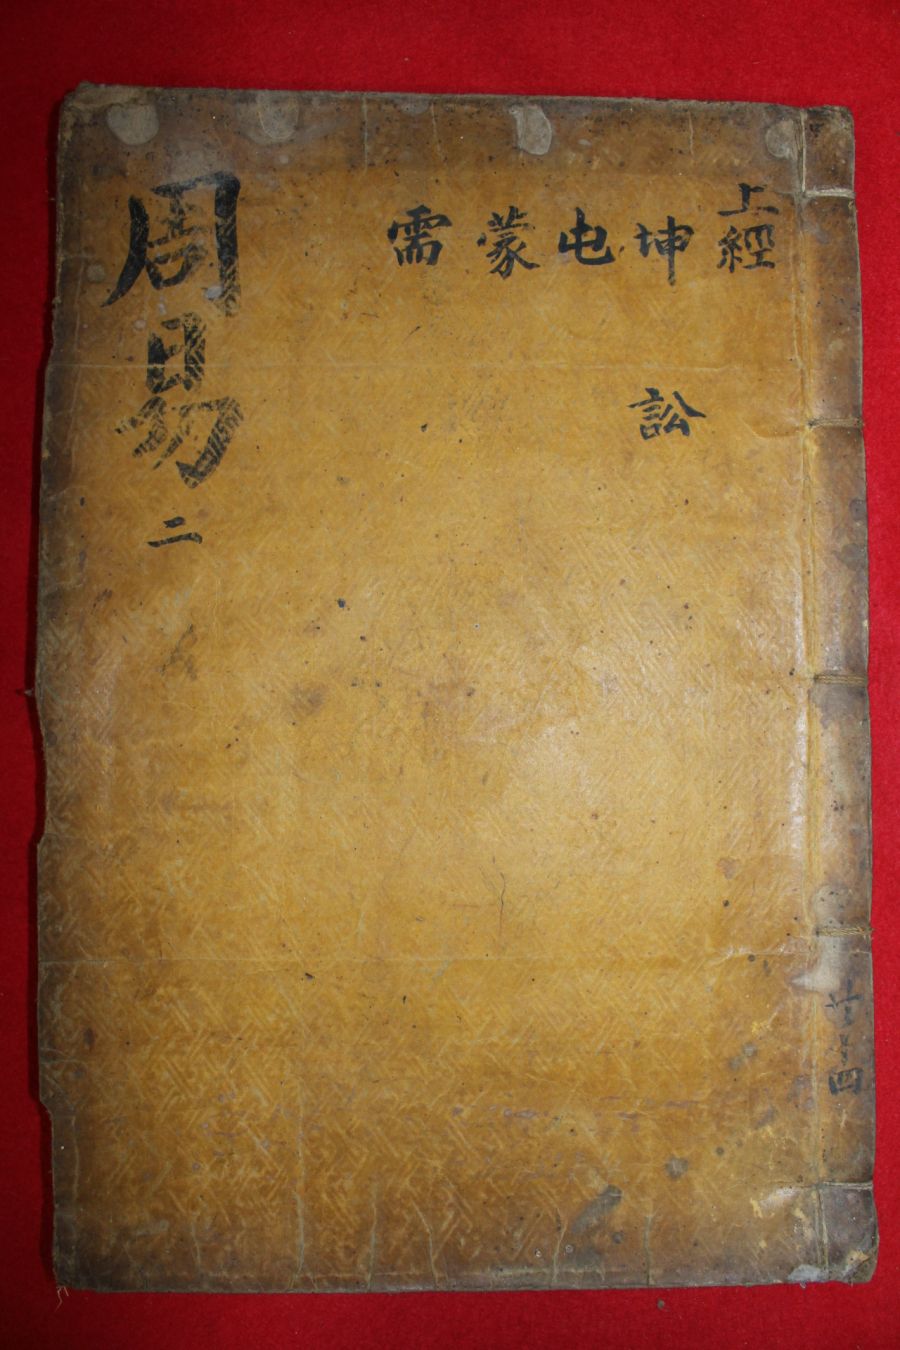 上經
坤
屯
蒙
需
訟
周易
二
共十四